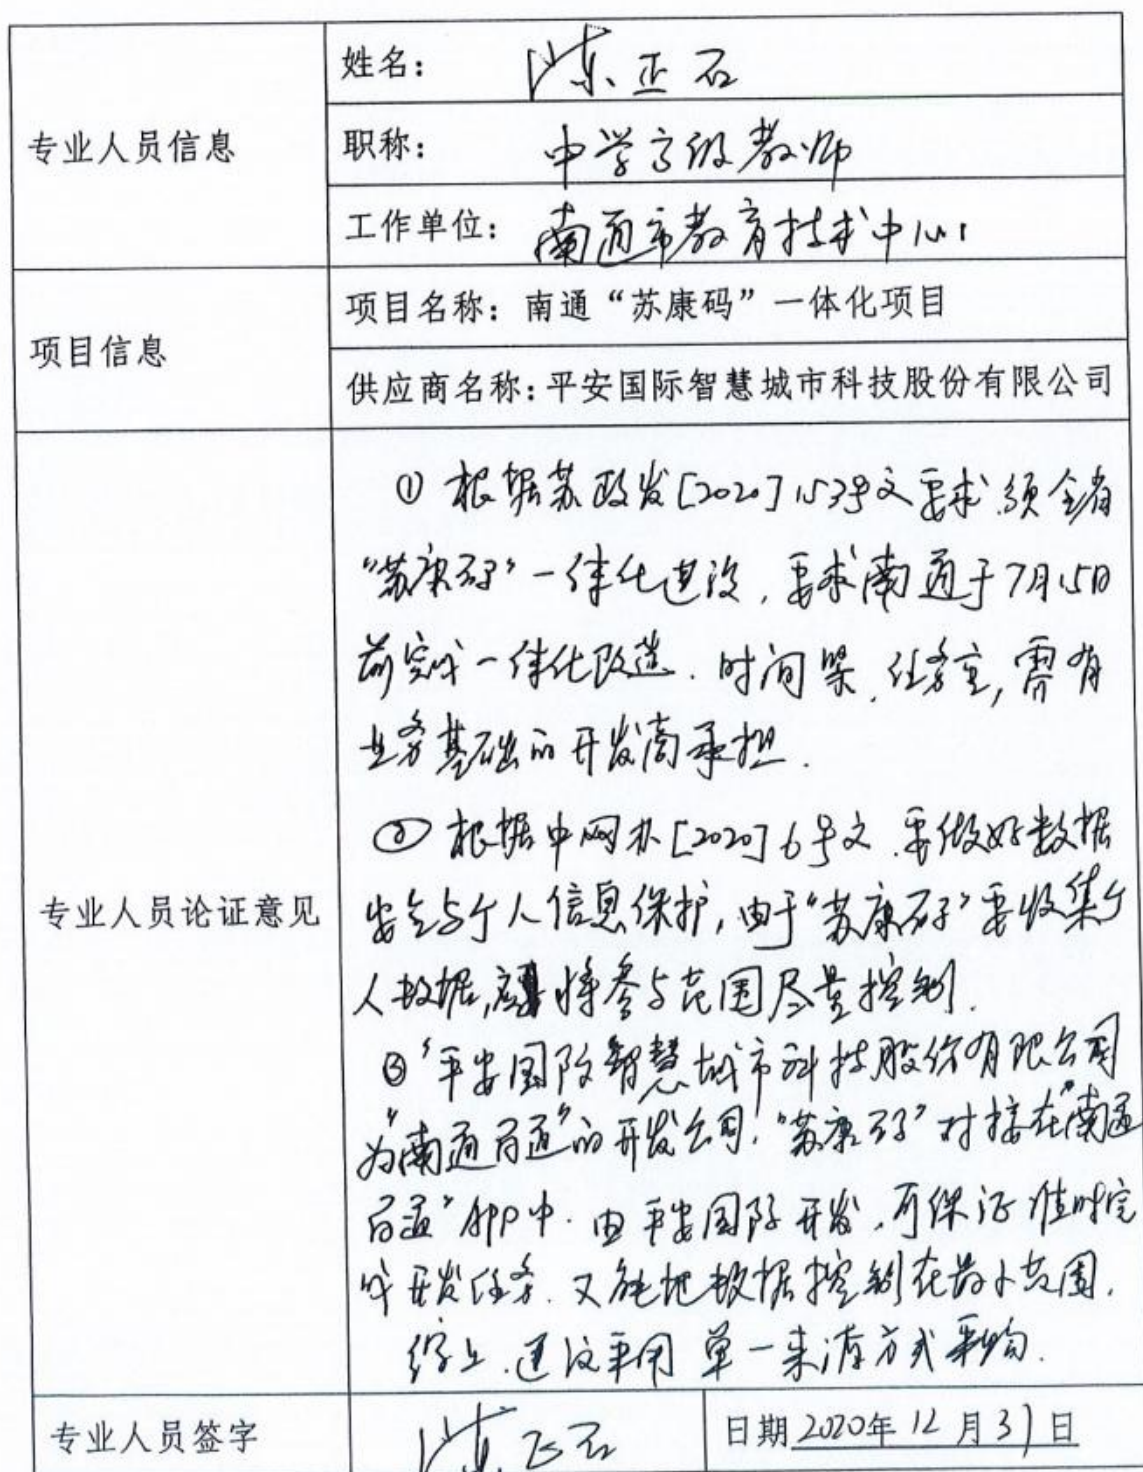 专业人员信息
姓名：陈正石
职称：中学高级教师
工作单位：南通市教育技术中心
项目信息
项目名称：南通“苏康码”一体化项目
供应商名称：平安国际智慧城市科技股份有限公司
专业人员论证意见
① 根据苏政发[2020]153号文要求,须全省
“苏康码”一体化建设,要求南通于7月15日
前完成一体化改造.时间紧,任务重,需有
业务基础的开发商承担.
② 根据中网办[2020]6号文.要做好数据
安全与个人信息保护,由于“苏康码”要收集个
人数据,应将参与范围尽量控制.
③ 平安国际智慧城市科技股份有限公司
为“南通百通”的开发公司,“苏康码”对接在“南通
百通”APP中.由平安国际开发,可保证准时完
成开发任务.又能把数据控制在最小范围.
综上.建议采用单一来源方式采购.
专业人员签字
陈正石
日期2020年12月31日